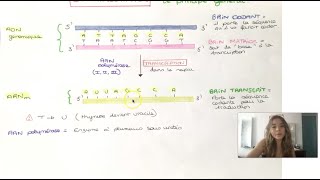 Le principe général
ADN génomique
5' 3'
A T T A T G C C T
T A A T A C G G A
3' 5'
BRIN CODANT =
BRIN MATRICE =
sert de "base" à la transcription
ARN polymérase (I, II, III)
TRANSCRIPTION
dans le noyau
ARNm
5' 3'
BRIN TRANSCRIT =
Porte la séquence codante pour la traduction
⚠ T → U (thymine devient uracile)
ARN polymérase = Enzyme à plusieurs sous unités